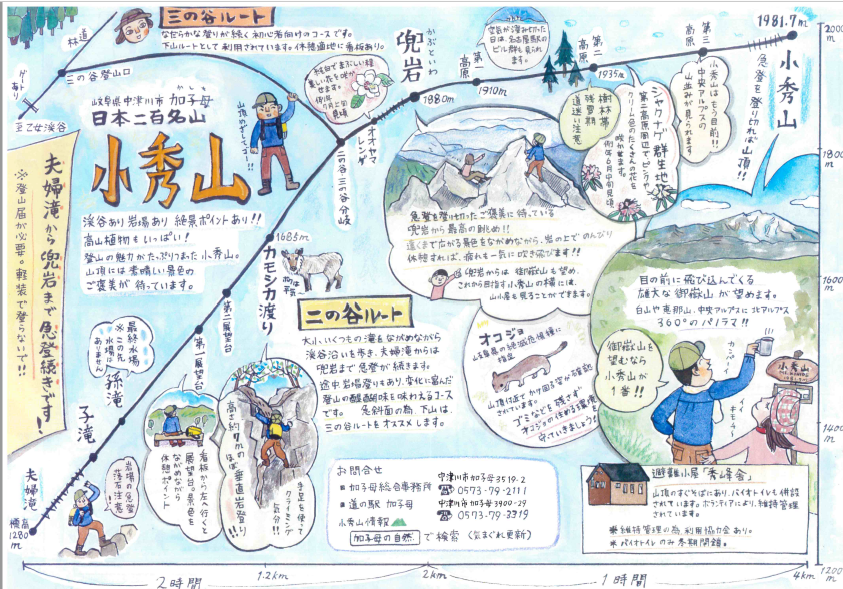 三の谷ルート
なだらかな登りが続く初心者向けのコースです。
下山ルートとして利用されています。休憩適地に看板あり。
林道
ゲートあり
至乙女渓谷
三の谷登山口
岐阜県中津川市 加子母
かしも
日本二百名山
小秀山
山頂めざしてゴー!!
渓谷あり岩場あり 絶景ポイントあり!!
高山植物もいっぱい!
登山の魅力がたっぷりつまった小秀山。
山頂には素晴しい景色の
ご褒美が待っています。
夫婦滝から兜岩まで急登続きです!
※登山届が必要。軽装で登らないで!!
純白でまぶしい程
美しい花を咲か
せます。
例年
7月上旬
見頃
オオヤマレンゲ
二の谷・三の谷分岐
兜岩
かぶといわ
1880m
空気が澄み切った
日は、名古屋駅の
ビル群も見られ
ます。
第一高原
1910m
第二高原
1935m
第三高原
小秀山はもう目前!!
中央アルプスの
山並みが見られます
1981.7m
小秀山
急登を登り切れば山頂!!
樹林帯
残雪期
道迷い注意
シャクナゲ群生地
第二高原周辺でピンクや
クリーム色のたくさんの花を
咲かせます。
例年6月中旬見頃
急登を登り切ったご褒美に待っている
兜岩から最高の眺め!!
遠くまで広がる景色をながめながら、岩の上でのんびり
休憩すれば、疲れも一気に吹き飛びます!!
兜岩からは 御嶽山も望め、
これから目指す小秀山の横には、
山小屋も見ることができます。
目の前に飛び込んでくる
雄大な御嶽山が望めます。
白山や恵那山、中央アルプスに北アルプス
360°のパノラマ!!
御嶽山を
望むなら
小秀山が
1番!!
カンパーイ
キモチ〜
小秀山
1685m
カモシカ渡り
第二展望台
第一展望台
最終水場
※この先
水場は
ありません
孫滝
子滝
夫婦滝
標高
1280m
岩場の急登
落石注意!
看板から左へ行くと
展望台。景色を
ながめながら
休憩ポイント
高さ約7mのほぼ垂直岩登り!!
手足を使って
クライミング
気分!!
二の谷ルート
大小、いくつもの滝をながめながら
渓谷沿いを歩き、夫婦滝からは
兜岩まで 急登が続きます。
途中岩場登りもあり、変化に富んだ
登山の醍醐味を味わえるコース
です。 急斜面の為、下山は、
三の谷ルートをオススメします。
オコジョ
岐阜県の絶滅危惧種に
指定
山頂付近でか何回も姿が確認
されています。
ゴミなどを残さず
オコジョの住める環境を
守っていきましょう!
お問合せ
■ 加子母総合事務所
中津川市加子母3519-2
☎ 0573-79-2111
■ 道の駅 加子母
中津川市加子母3900-29
☎ 0573-79-3319
小秀山情報
加子母の自然 で検索 (気まぐれ更新)
避難小屋「秀峰舎」
山頂のすぐそばにあり、バイオトイレも併設
されています。ボランティアにより、維持管理
されています。
※維持管理の為、利用協力金あり。
※バイオトイレのみ冬期閉鎖。
2000m
1800m
1600m
1400m
1200m
1.2km
2km
4km
2時間
1時間